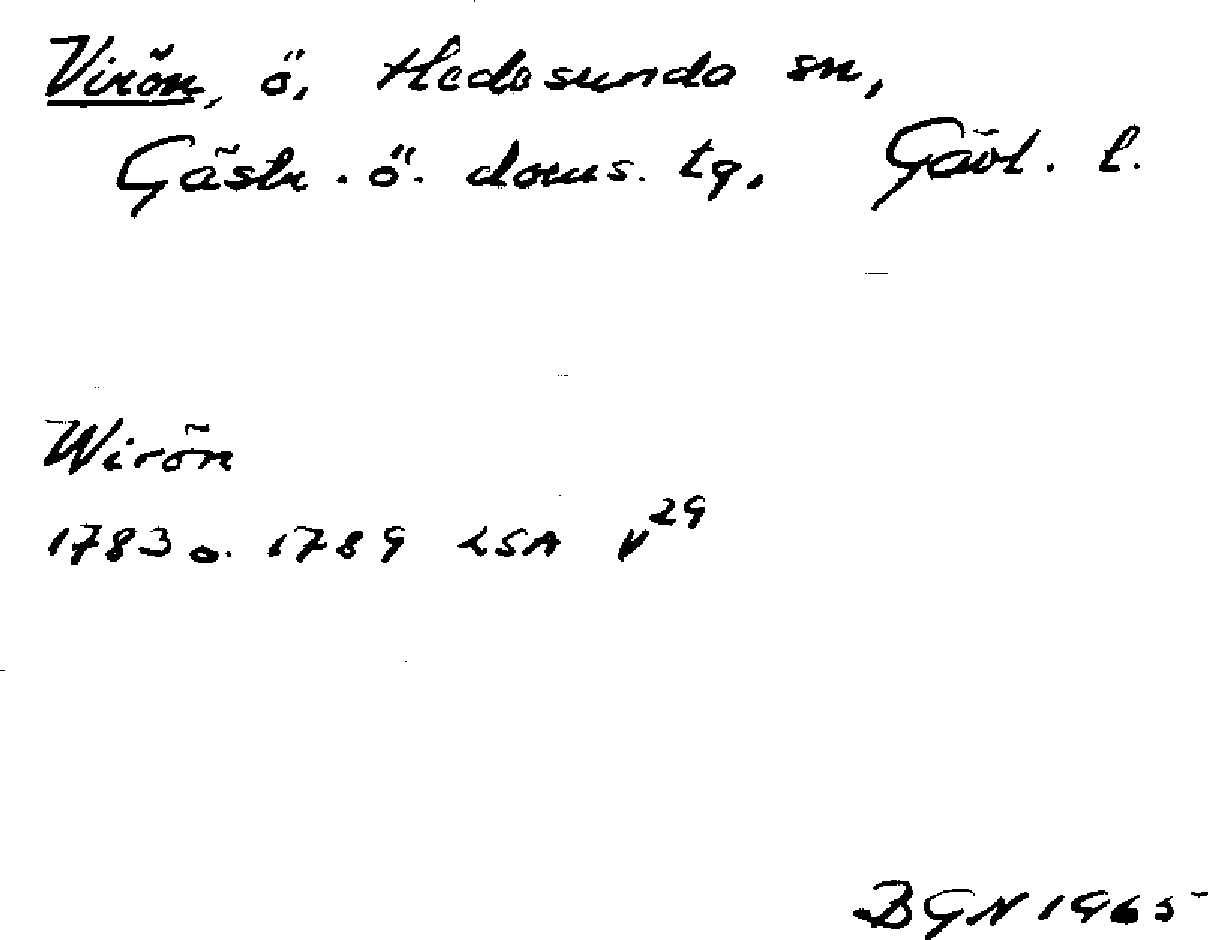 Virön, ö, Hedesunda sn,
Gästr. ö. doms. tg, Gävl. l.
Wirön
1783 o. 1789 LSA V29
BGN 1965